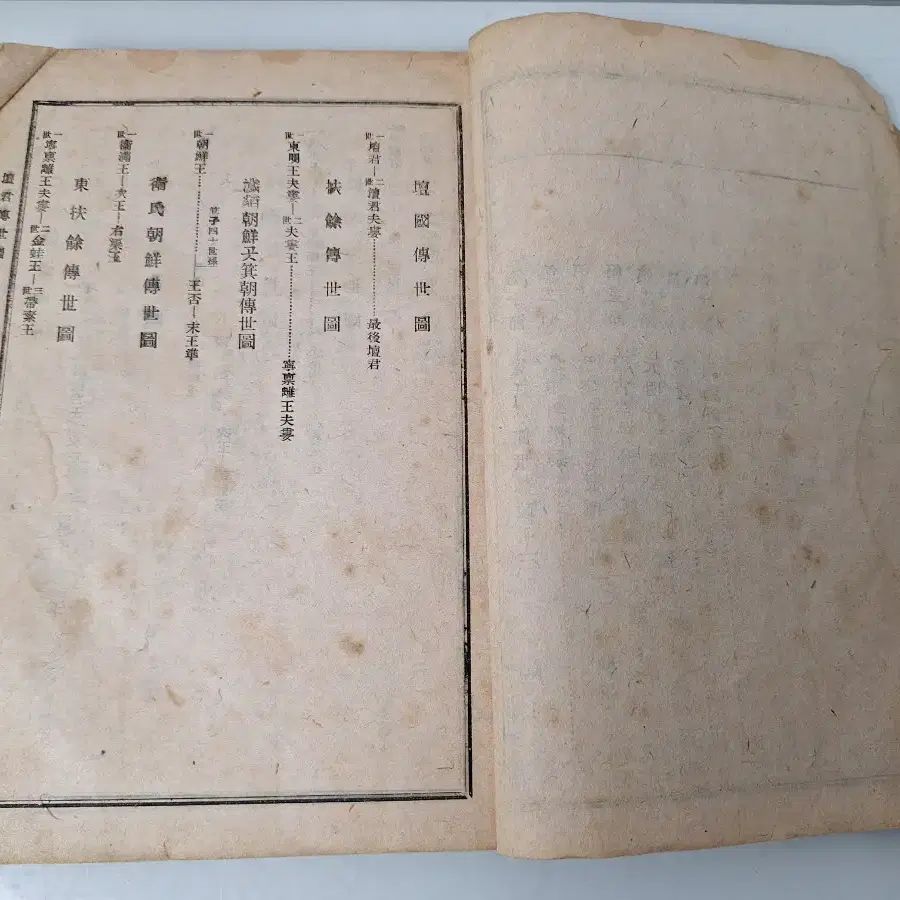 壇國傳世圖
一世壇君—二世壇君夫婁………………最後壇君
扶餘傳世圖
一世東明王夫婁—二世夫婁王………………寧稟離王夫婁
朝鮮又箕朝傳世圖
箕子四十世孫
一世朝鮮王………王否—末王準
衛氏朝鮮傳世圖
一世衛滿王—次王—右渠王
東扶餘傳世圖
一世寧稟離王夫婁—二世金蛙王—三世帶素王
壇君傳世